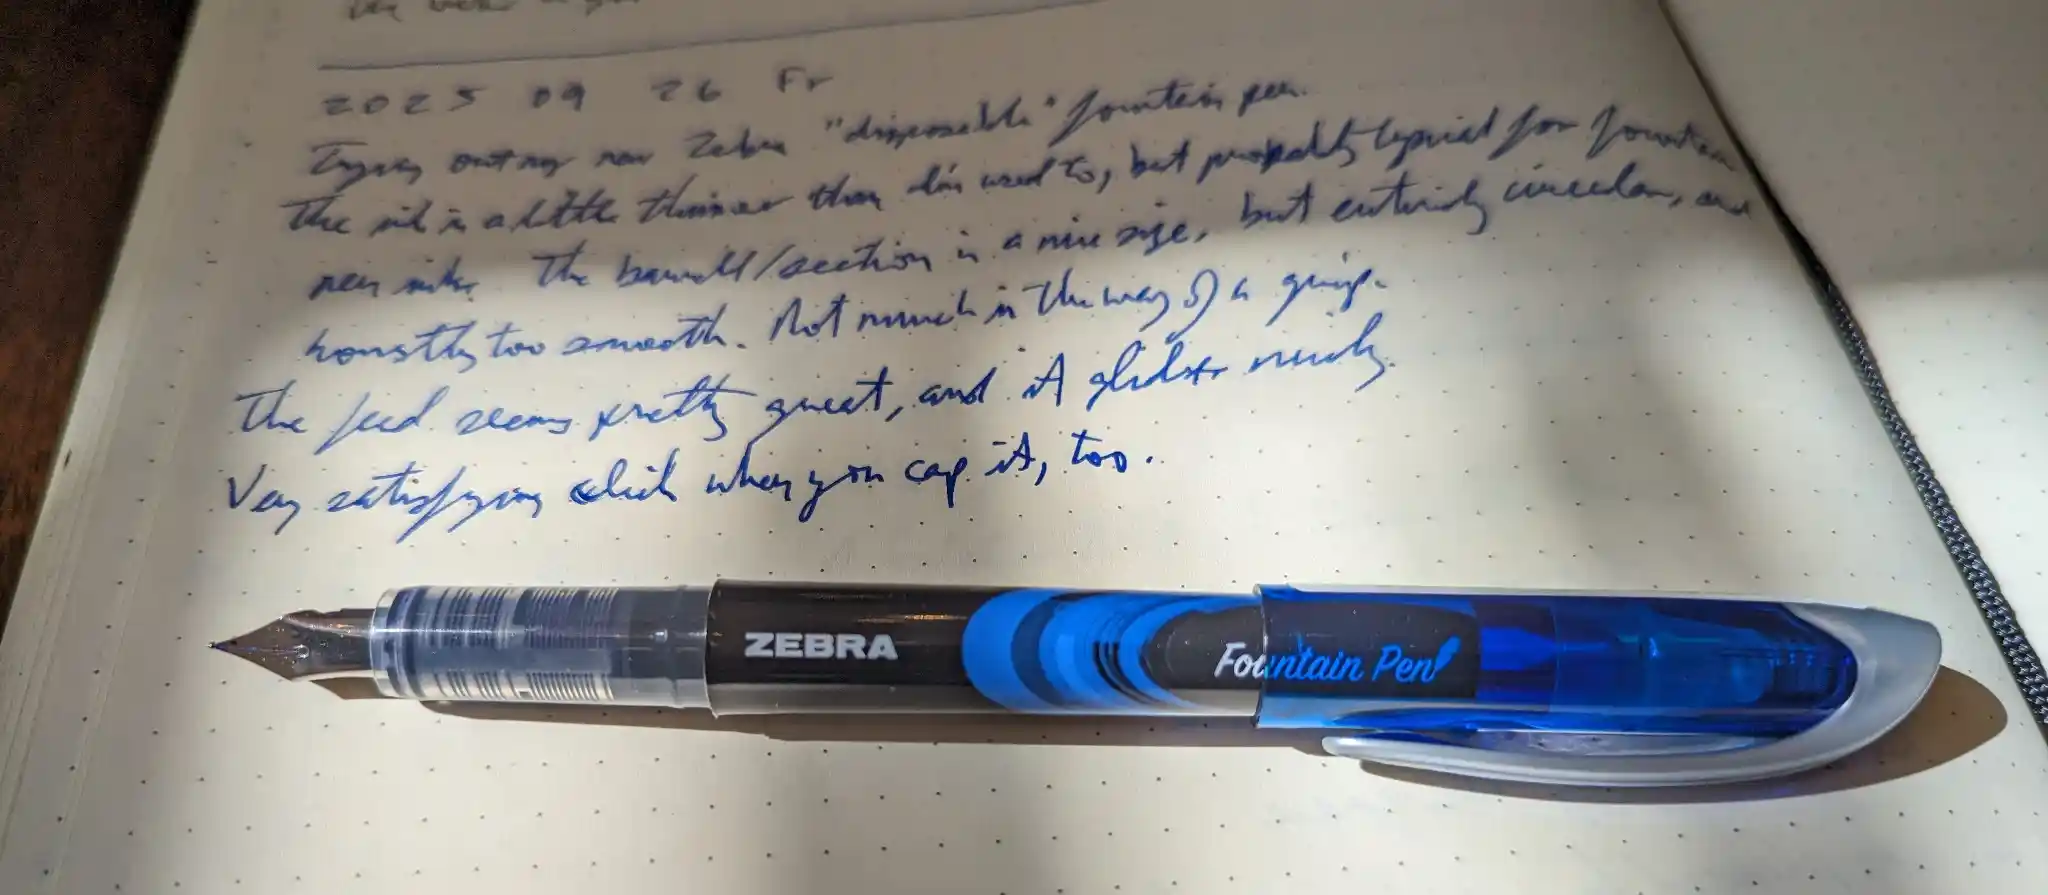 2025 09 26 Fr
Trying out my new Zebra "disposable" fountain pen.
The nib is a little thinner than I'm used to, but probably typical for fountain
pen nibs. The barrell/section is a nice size, but entirely circular, and
honstly too smooth. Not much in the way of a grip.
The feed seems pretty great, and it glides nicely.
Very satisfying click when you cap it, too.
ZEBRA
Fountain Pen